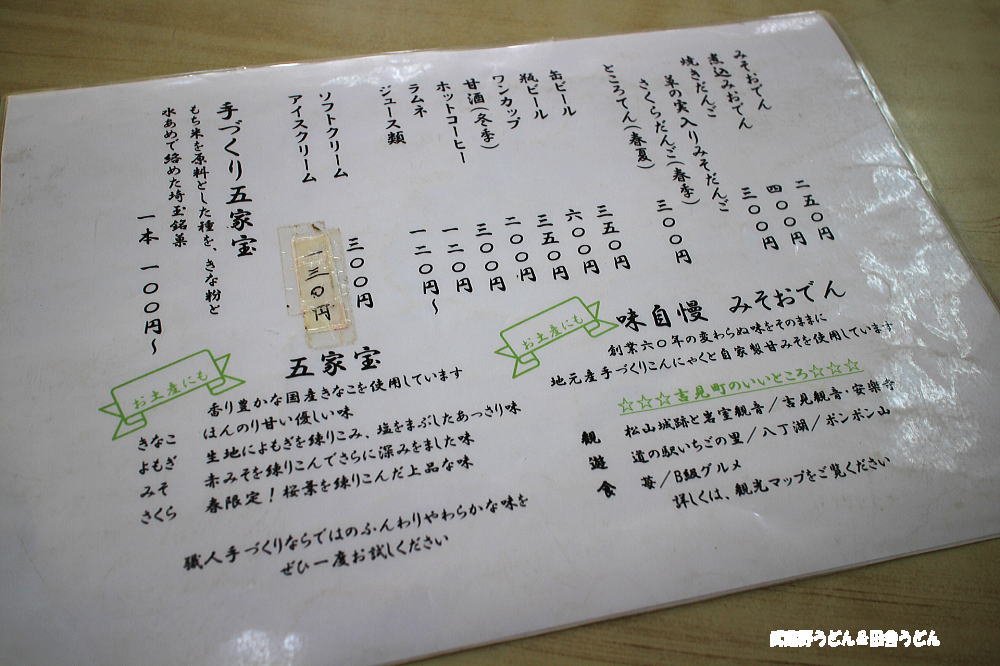 みそおでん 二五〇円
煮込みおでん 四〇〇円
焼きだんご 三〇〇円
の実入りみそだんご
さくらだんご(春季)
ところてん(春夏) 三〇〇円
缶ビール 三五〇円
瓶ビール 六〇〇円
ワンカップ 三五〇円
甘酒(冬季) 二〇〇円
ホットコーヒー 三〇〇円
ラムネ 一二〇円
ジュース類 一二〇円〜
ソフトクリーム 三〇〇円
アイスクリーム 一三〇円
手づくり五家宝
もち米を原料とした種を、きな粉と
水あめで絡めた埼玉銘菓
一本 一〇〇円〜
お土産にも
味自慢 みそおでん
創業六〇年の変わらぬ味をそのままに
地元産手づくりこんにゃくと自家製甘みそを使用しています
☆☆☆吉見町のいいところ☆☆☆
観 松山城跡と岩室観音／吉見観音・安楽寺
遊 道の駅いちごの里／八丁湖／ポンポン山
食 苺／B級グルメ
詳しくは、観光マップをご覧ください
お土産にも
五家宝
香り豊かな国産きなこを使用しています
きなこ ほんのり甘い優しい味
よもぎ 生地によもぎを練りこみ、塩をまぶしたあっさり味
みそ 赤みそを練りこんでさらに深みをました味
さくら 春限定！桜葉を練りこんだ上品な味
職人手づくりならではのふんわりやわらかな味を
ぜひ一度お試しください
武蔵野うどん＆田舎うどん